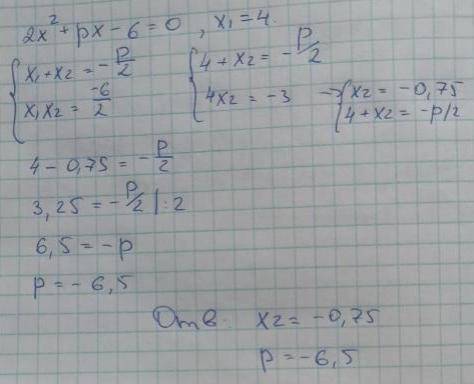 2x² + px - 6 = 0 , x₁ = 4.
{ x₁ + x₂ = -p/2
x₁x₂ = -6/2
{ 4 + x₂ = -p/2
4x₂ = -3
→ { x₂ = -0,75
4 + x₂ = -p/2
4 - 0,75 = -p/2
3,25 = -p/2 | :2
6,5 = -p
p = -6,5
Отв. x₂ = -0,75
p = -6,5